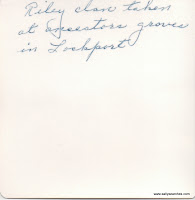 Riley clan taken
at ancestors groves
in Lockport
www.sallysearches.com